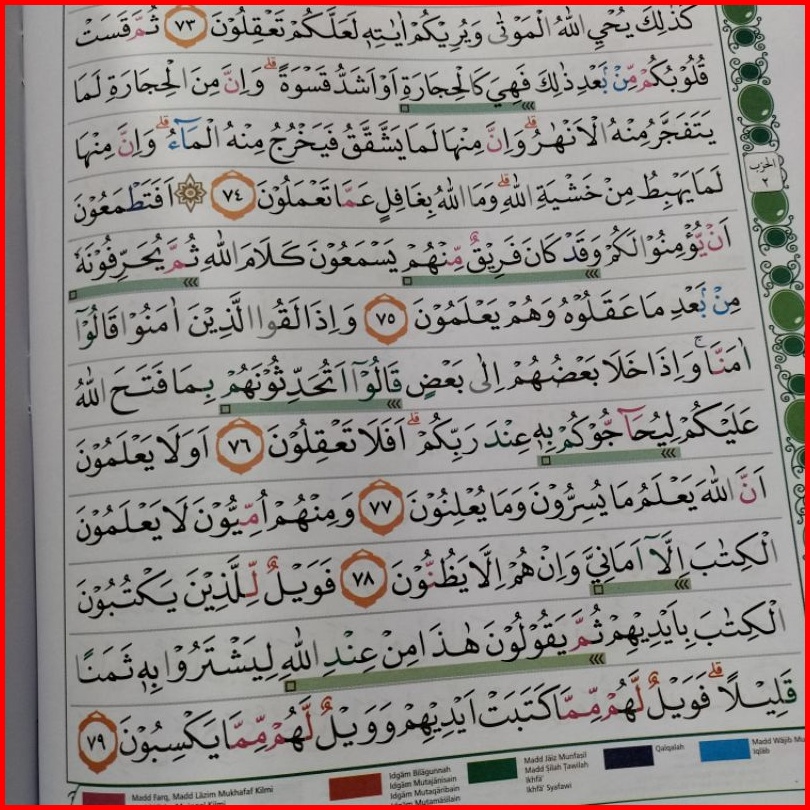 كَذٰلِكَ يُحْيِ اللّٰهُ الْمَوْتٰى وَيُرِيْكُمْ اٰيٰتِهٖ لَعَلَّكُمْ تَعْقِلُوْنَ ٧٣ ثُمَّ قَسَتْ
قُلُوْبُكُمْ مِّنْۢ بَعْدِ ذٰلِكَ فَهِيَ كَالْحِجَارَةِ اَوْ اَشَدُّ قَسْوَةً ۗ وَاِنَّ مِنَ الْحِجَارَةِ لَمَا
يَتَفَجَّرُ مِنْهُ الْاَنْهٰرُ ۗ وَاِنَّ مِنْهَا لَمَا يَشَّقَّقُ فَيَخْرُجُ مِنْهُ الْمَاۤءُ ۗ وَاِنَّ مِنْهَا
الحزب
٢
لَمَا يَهْبِطُ مِنْ خَشْيَةِ اللّٰهِ ۗ وَمَا اللّٰهُ بِغَافِلٍ عَمَّا تَعْمَلُوْنَ ٧٤ ۞ اَفَتَطْمَعُوْنَ
اَنْ يُّؤْمِنُوْا لَكُمْ وَقَدْ كَانَ فَرِيْقٌ مِّنْهُمْ يَسْمَعُوْنَ كَلَامَ اللّٰهِ ثُمَّ يُحَرِّفُوْنَهٗ
مِنْۢ بَعْدِ مَا عَقَلُوْهُ وَهُمْ يَعْلَمُوْنَ ٧٥ وَاِذَا لَقُوا الَّذِيْنَ اٰمَنُوْا قَالُوْٓا
اٰمَنَّاۚ وَاِذَا خَلَا بَعْضُهُمْ اِلٰى بَعْضٍ قَالُوْٓا اَتُحَدِّثُوْنَهُمْ بِمَا فَتَحَ اللّٰهُ
عَلَيْكُمْ لِيُحَاۤجُّوْكُمْ بِهٖ عِنْدَ رَبِّكُمْ ۗ اَفَلَا تَعْقِلُوْنَ ٧٦ اَوَلَا يَعْلَمُوْنَ
اَنَّ اللّٰهَ يَعْلَمُ مَا يُسِرُّوْنَ وَمَا يُعْلِنُوْنَ ٧٧ وَمِنْهُمْ اُمِّيُّوْنَ لَا يَعْلَمُوْنَ
الْكِتٰبَ اِلَّآ اَمَانِيَّ وَاِنْ هُمْ اِلَّا يَظُنُّوْنَ ٧٨ فَوَيْلٌ لِّلَّذِيْنَ يَكْتُبُوْنَ
الْكِتٰبَ بِاَيْدِيْهِمْ ثُمَّ يَقُوْلُوْنَ هٰذَا مِنْ عِنْدِ اللّٰهِ لِيَشْتَرُوْا بِهٖ ثَمَنًا
قَلِيْلًا ۗ فَوَيْلٌ لَّهُمْ مِّمَّا كَتَبَتْ اَيْدِيْهِمْ وَوَيْلٌ لَّهُمْ مِّمَّا يَكْسِبُوْنَ ٧٩
Madd Farq, Madd Lāzim Mukhafaf Kilmi
Idgām Bilāgunnah
Idgām Mutajānisain
Idgām Mutaqāribain
Idgām Mutamāṡilain
Madd Jāiz Munfaṣil
Madd Ṣilah Ṭawīlah
Ikhfā'
Ikhfā' Syafawi
Qalqalah
Madd Wājib Mu
Iqlāb